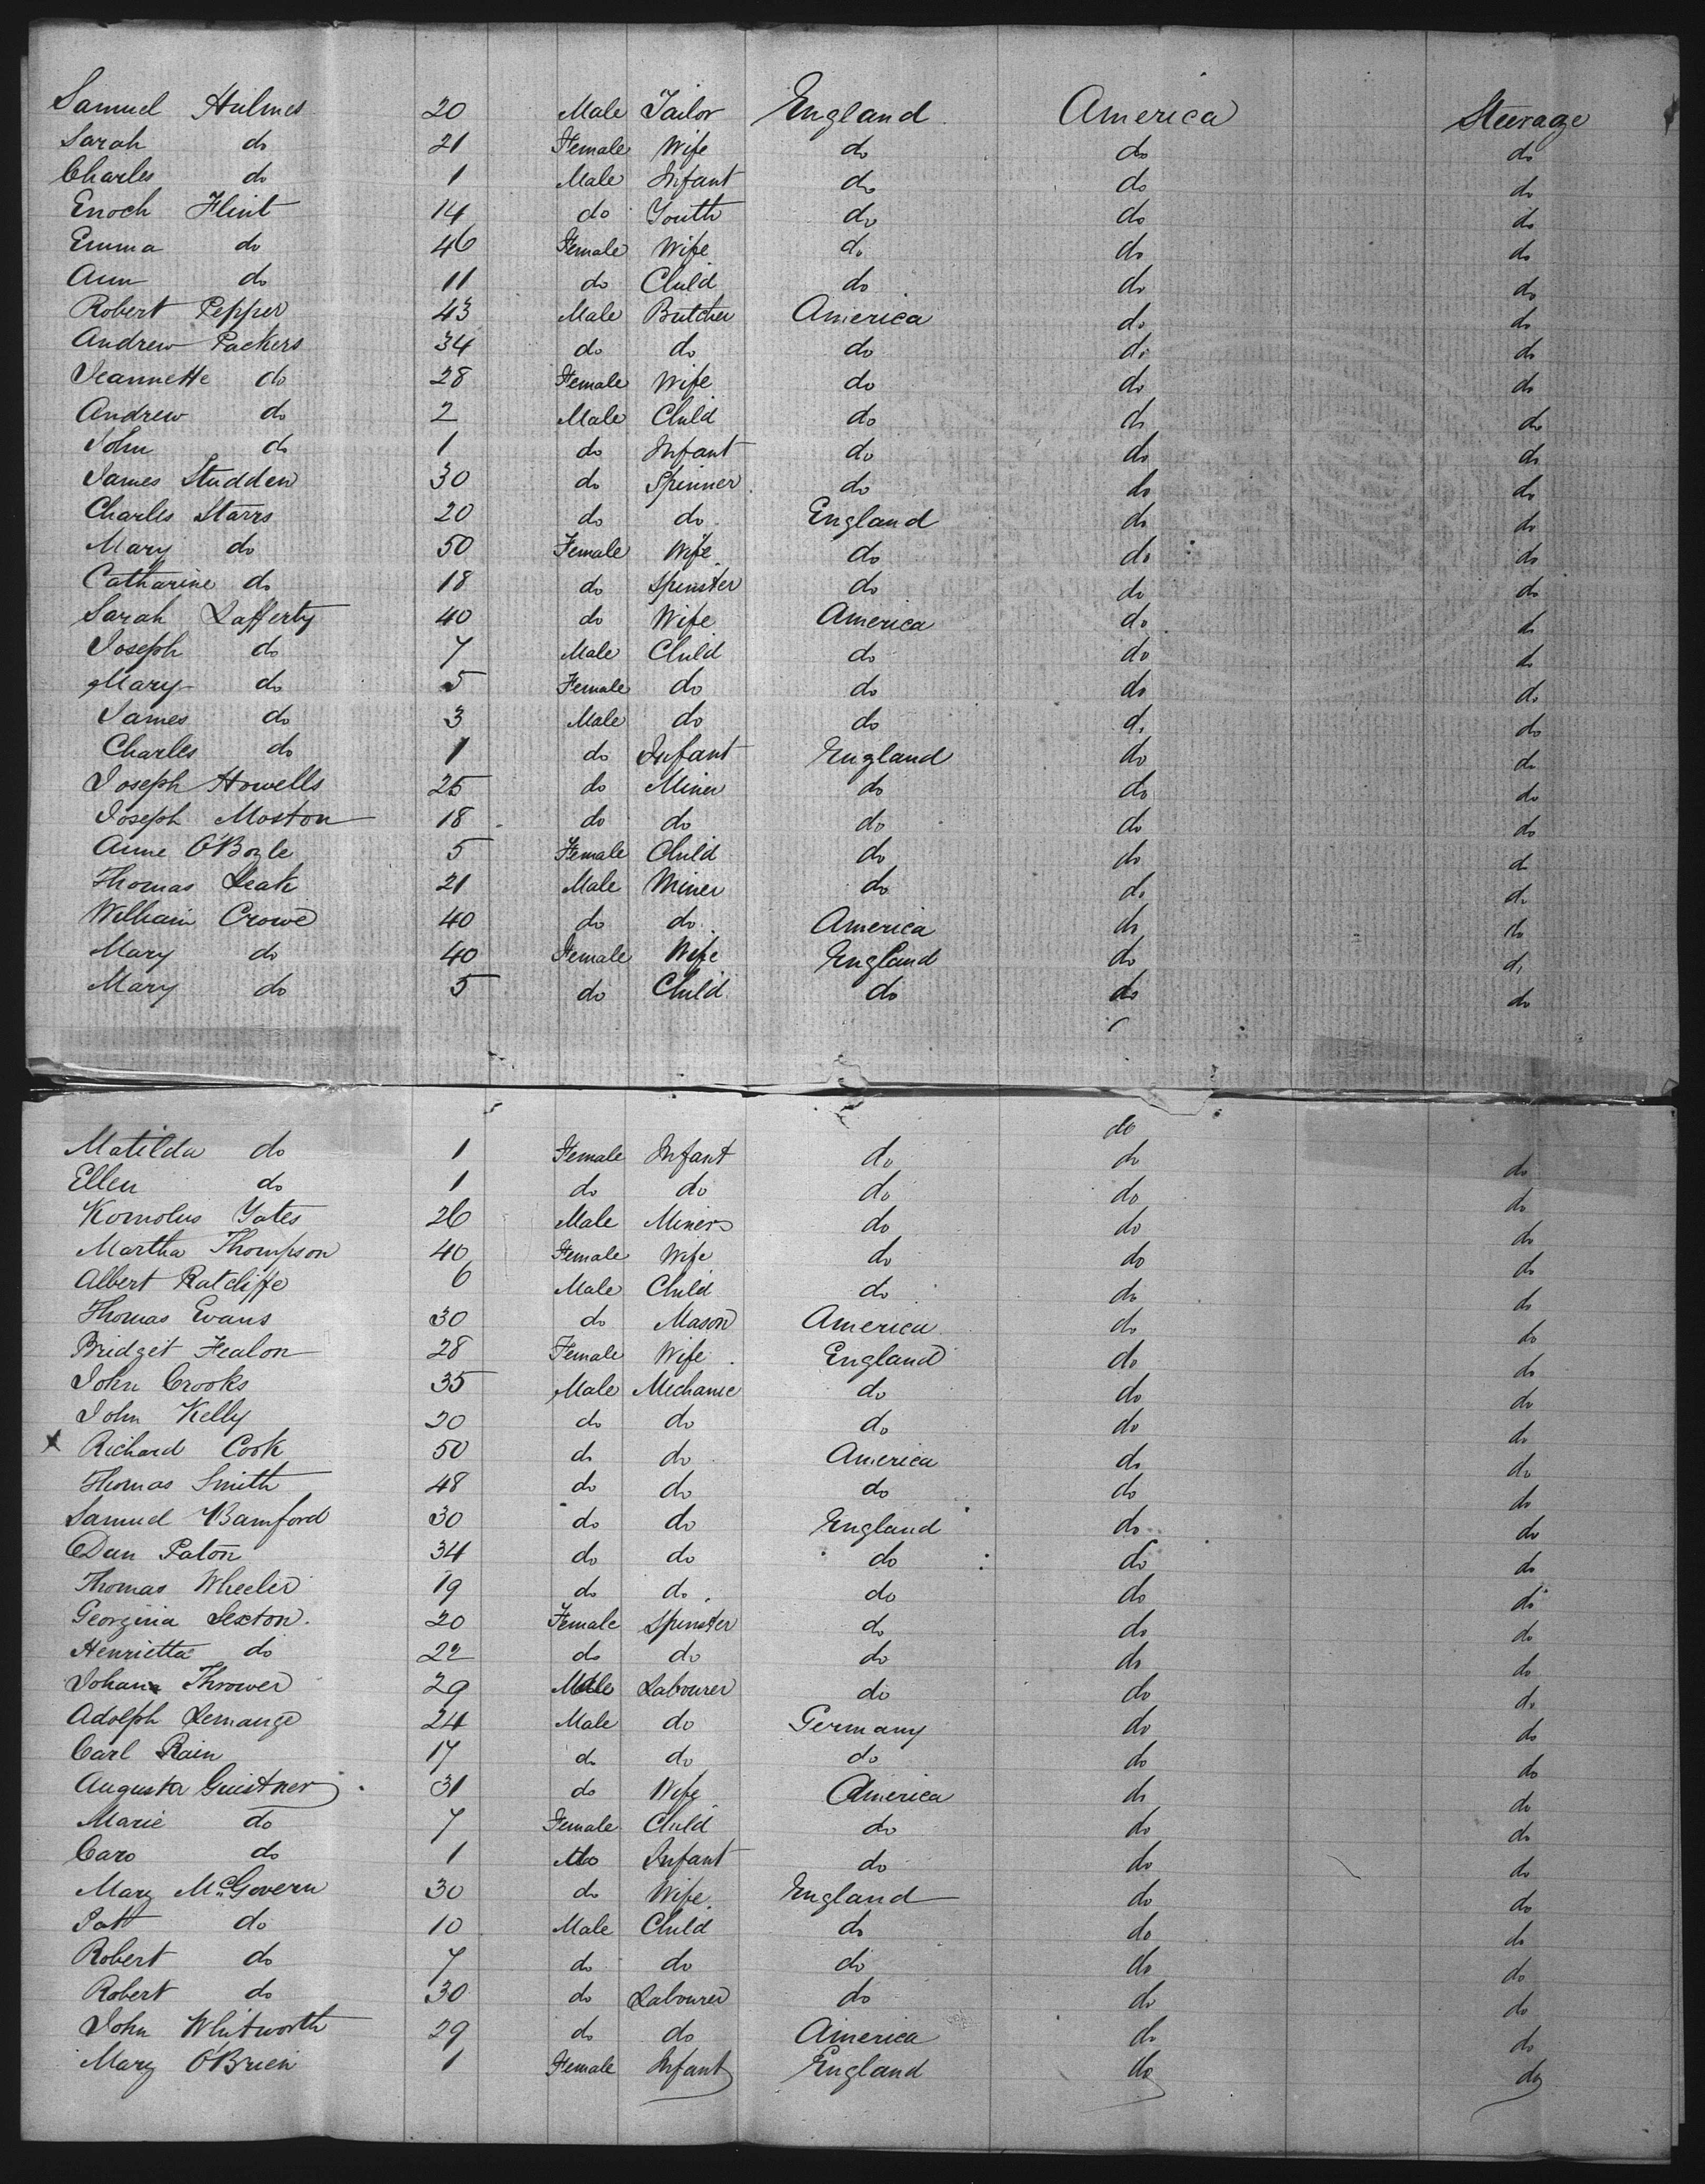 Samuel Hulmes 20 Male Tailor England America Steerage
Sarah do 21 Female Wife do do do
Charles do 1 Male Infant do do do
Enoch Flint 14 do Youth do do do
Emma do 46 Female Wife do do do
Ann do 11 do Child do do do
Robert Pepper 43 Male Butcher America do do
Andrew Packers 34 do do do do do
Jeannette do 28 Female Wife do do do
Andrew do 2 Male Child do do do
John do 1 do Infant do do do
James Studden 30 do Spinner do do do
Charles Starrs 20 do do England do do
Mary do 50 Female Wife do do do
Catharine do 18 do Spinster do do do
Sarah Lafferty 40 do Wife America do do
Joseph do 7 Male Child do do do
Mary do 5 Female do do do do
James do 3 Male do do do do
Charles do 1 do Infant England do do
Joseph Howells 25 do Miner do do do
Joseph Moston 18 do do do do do
Anne O'Boyle 5 Female Child do do do
Thomas Leak 21 Male Miner do do do
William Crowe 40 do do America do do
Mary do 40 Female Wife England do do
Mary do 5 do Child do do do
do
Matilda do 1 Female Infant do do do
Ellen do 1 do do do do do
Yates 26 Male Miner do do do
Martha Thompson 40 Female Wife do do do
Albert Ratcliffe 6 Male Child do do do
Thomas Evans 30 do Mason America do do
Bridget Fealon 28 Female Wife England do do
John Crooks 35 Male Mechanic do do do
John Kelly 20 do do do do do
x Richard Cook 50 do do America do do
Thomas Smith 48 do do do do do
Samuel Bamford 30 do do England do do
Dan Paton 34 do do do do do
Thomas Wheeler 19 do do do do do
Georgina Sexton 20 Female Spinster do do do
Henrietta do 22 do do do do do
Johann Thrower 29 Male Labourer do do do
Adolph Lemange 24 Male do Germany do do
Carl Rain 17 do do do do do
Augusta Guistner 31 do Wife America do do
Marie do 7 Female Child do do do
Caro do 1 do Infant do do do
Mary McGovern 30 do Wife England do do
Patt do 10 Male Child do do do
Robert do 7 do do do do do
Robert do 30 do Labourer do do do
John Whitworth 29 do do America do do
Mary O'Brien 1 Female Infant England do do